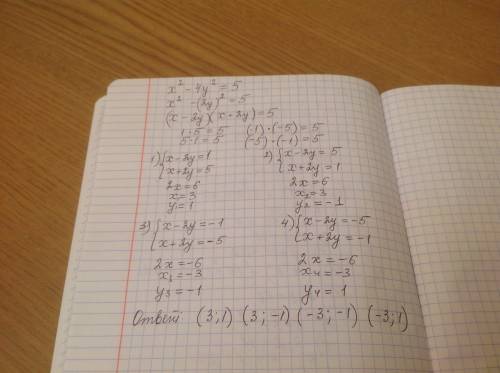 x² - 4y² = 5
x² - (2y)² = 5
(x - 2y)(x + 2y) = 5
1 · 5 = 5 (-1) · (-5) = 5
5 · 1 = 5 (-5) · (-1) = 5
1) { x - 2y = 1
x + 2y = 5
2x = 6
x = 3
y = 1
2) { x - 2y = 5
x + 2y = 1
2x = 6
x₂ = 3
y₂ = -1
3) { x - 2y = -1
x + 2y = -5
2x = -6
x₃ = -3
y₃ = -1
4) { x - 2y = -5
x + 2y = -1
2x = -6
x₄ = -3
y₄ = 1
Ответ: (3; 1) (3; -1) (-3; -1) (-3; 1)